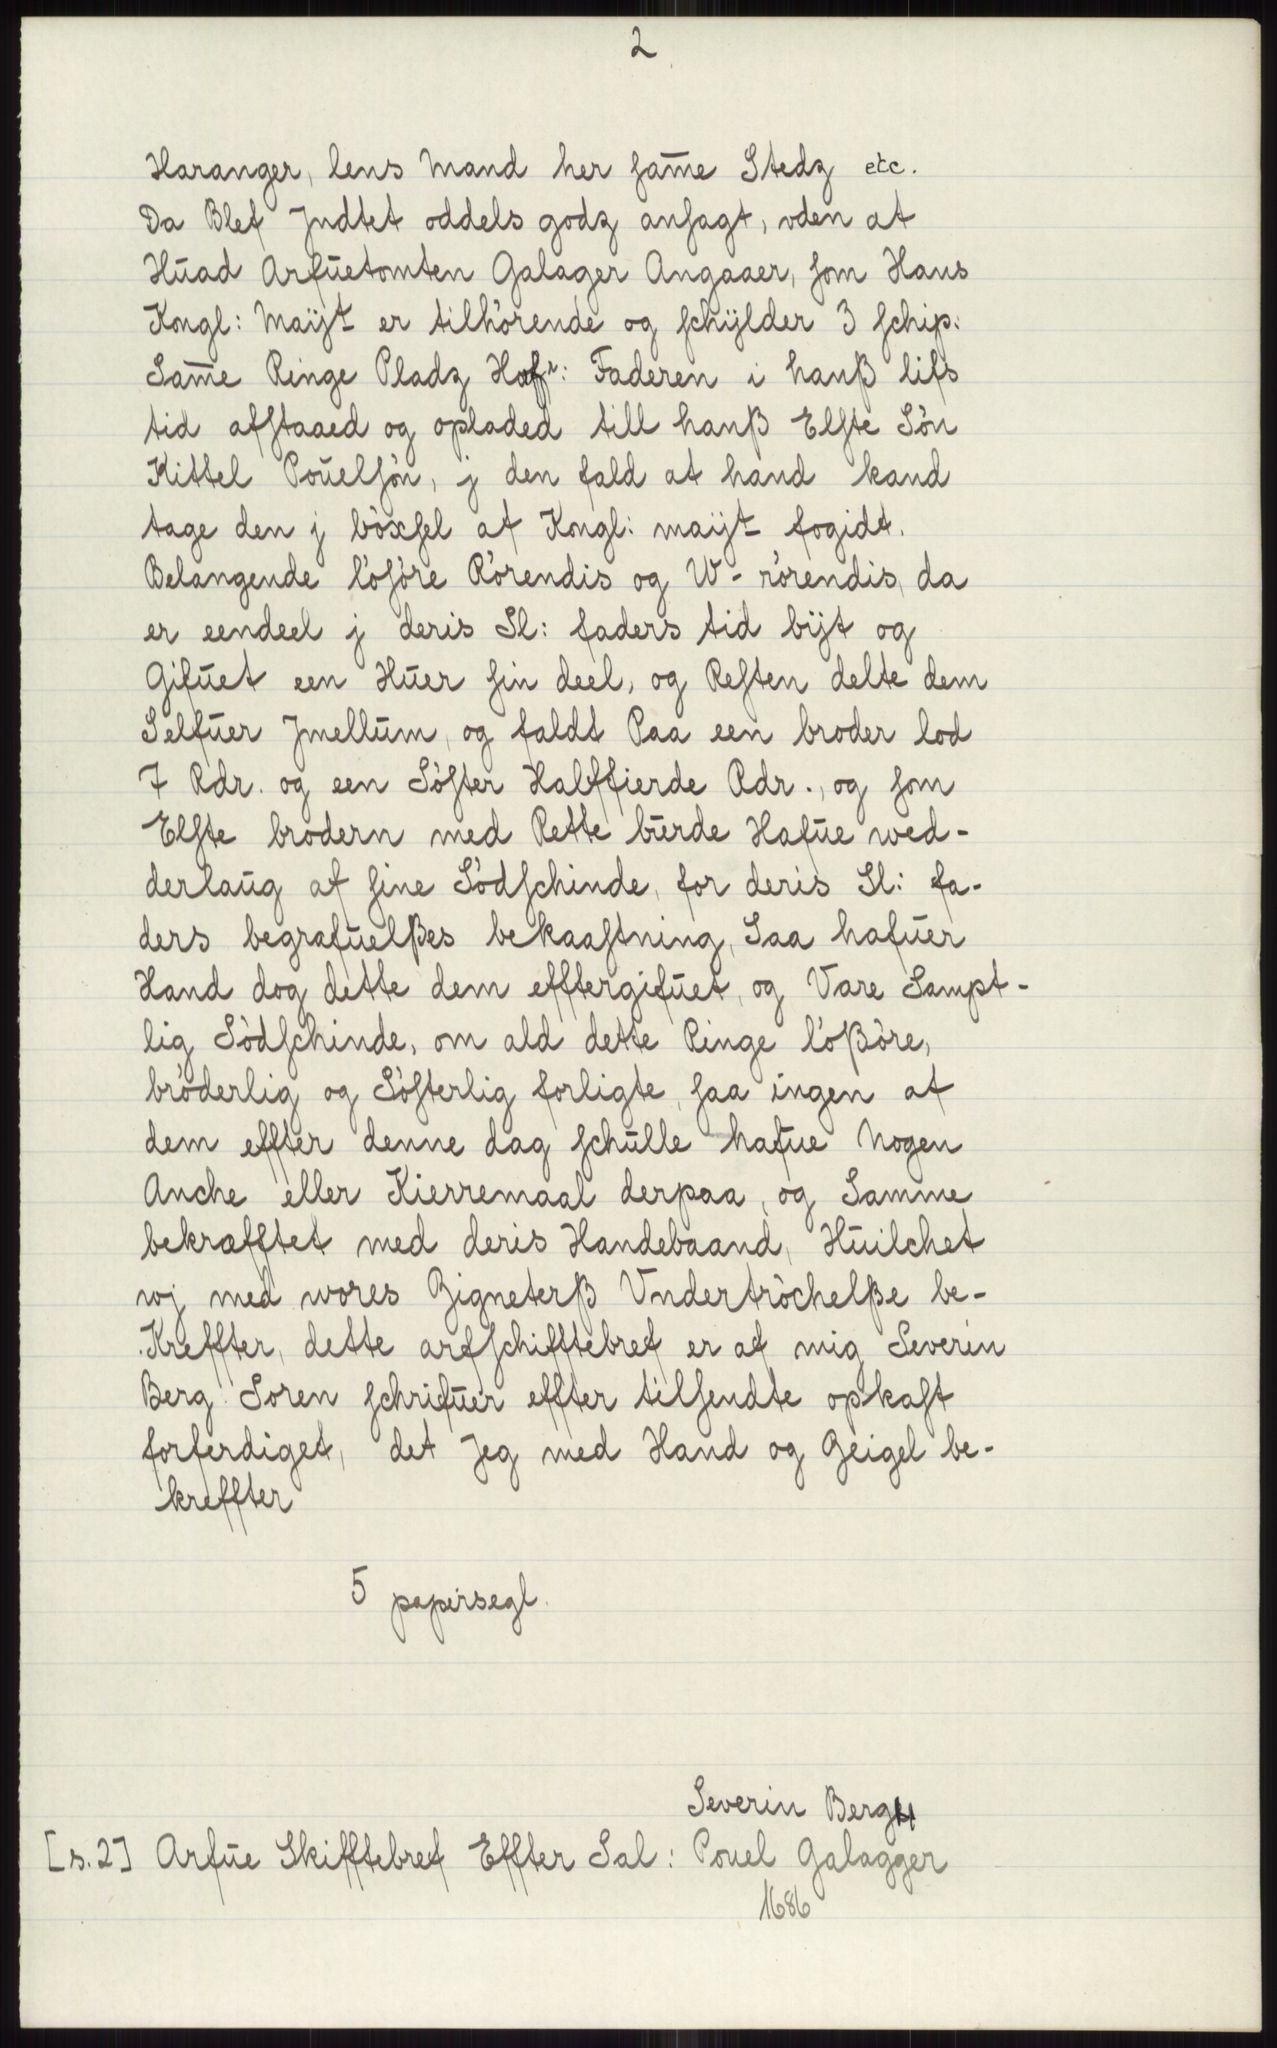 2
Haranger, lens Mand her sam̄e Stedz etc.
Da Blef Jndtet oddels godz ansagt, vden at
Hŭad Arfŭetomten Galager Angaaer, som Hans
Kongl: Maÿt er tilhörende og schÿlder 3 schip:
Sam̄e Ringe Pladz Hafr: Faderen i hanß lifs
tid afstaaed og opladed till hanß Elste Sön
Kittel Poŭelsön, j den fald at hand kand
tage den j böxsel af Kongl: maÿt fogidt.
Belangende lösöre Rörendis og W-rörendis, da
er eendeel j deris Sl: faders tid bÿt og
Gifŭet een Hŭer sin deel, og Resten delte dem
Selfŭer Jmellŭm, og faldt Paa een broder lod
7 Rdr. og een Söster Halffierde Rdr., og som
Elste brodern med Rette bŭrde Hafŭe wed-
derlaŭg af sine Södschinde, for deris Sl: fa-
ders begrafŭelßes bekaastning, Saa hafŭer
Hand dog dette dem efftergifŭet, og Vare Sampt-
lig Södschinde, om ald dette Ringe lößöre,
bröderlig og Sösterlig forligte, saa ingen af
dem effter denne dag schŭlle hafŭe Nogen
Anche eller Kierremaal derpaa, og Samme
bekræfftet med deris Handebaand, Hŭilchet
wj med wores Zigneterß Vndertröchelße be-
Kreffter, dette arfschifftebref er af mig Severin
Berg Soren schrifŭer effter tilsendte opkast
forferdiget, det Jeg med Hand og Zeigel be-
kreffter
5 papirsegl.
Severin BergH
[s.2] Arfŭe Skifftebref Effter Sal: Pouel Galagger
1686